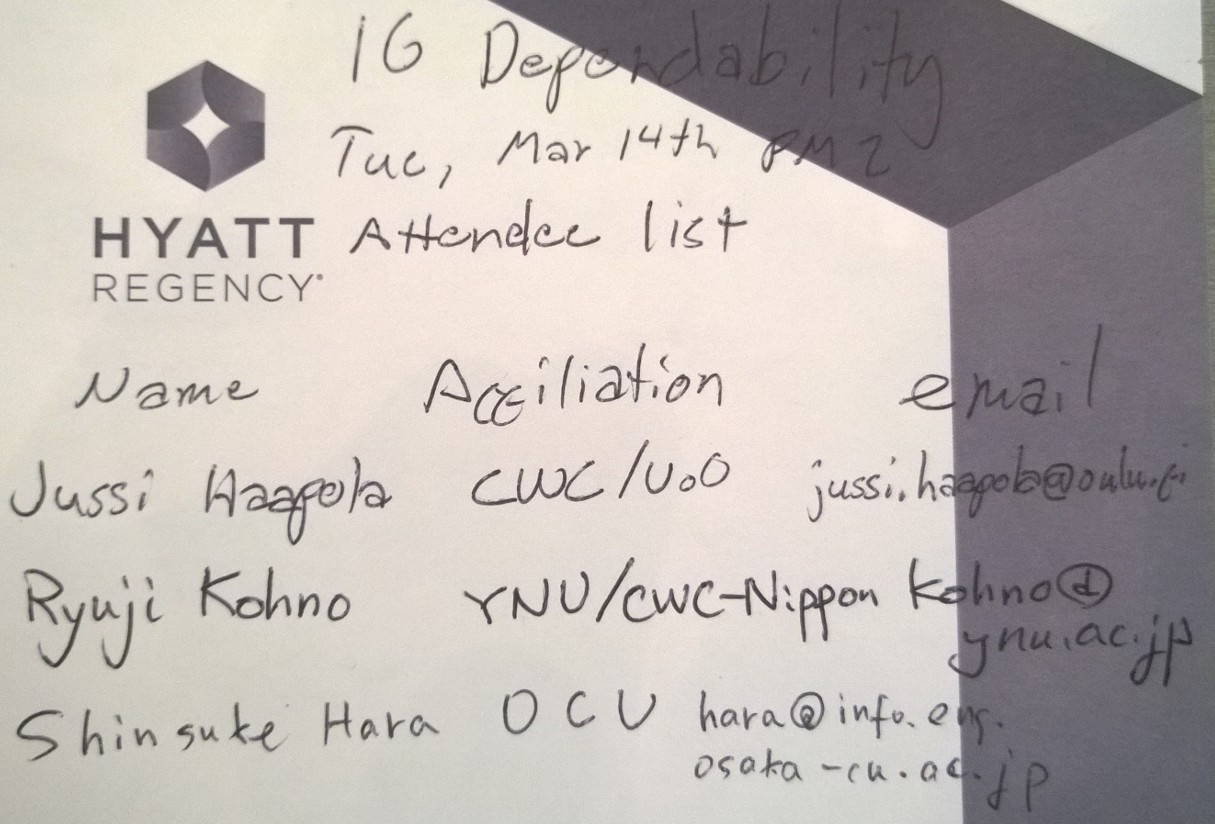 IG Dependability
Tue, Mar 14th PM2
HYATT
REGENCY
Attendee list
Name Affiliation email
Jussi Haapola CWC/UoO jussi.haapola@oulu.fi
Ryuji Kohno YNU/CWC-Nippon kohno@
ynu.ac.jp
Shinsuke Hara OCU hara@info.eng.
osaka-cu.ac.jp